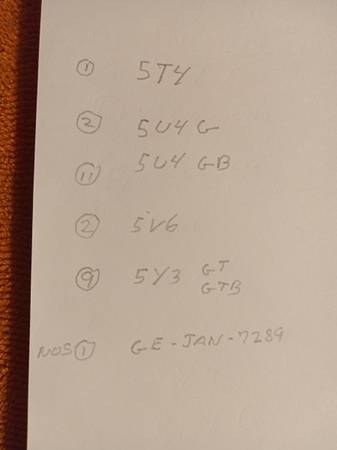 ① 5T4
② 5U4 G
⑪ 5U4 GB
② 5V6
⑨ 5Y3 GT
GTB
NOS ① GE-JAN-7289